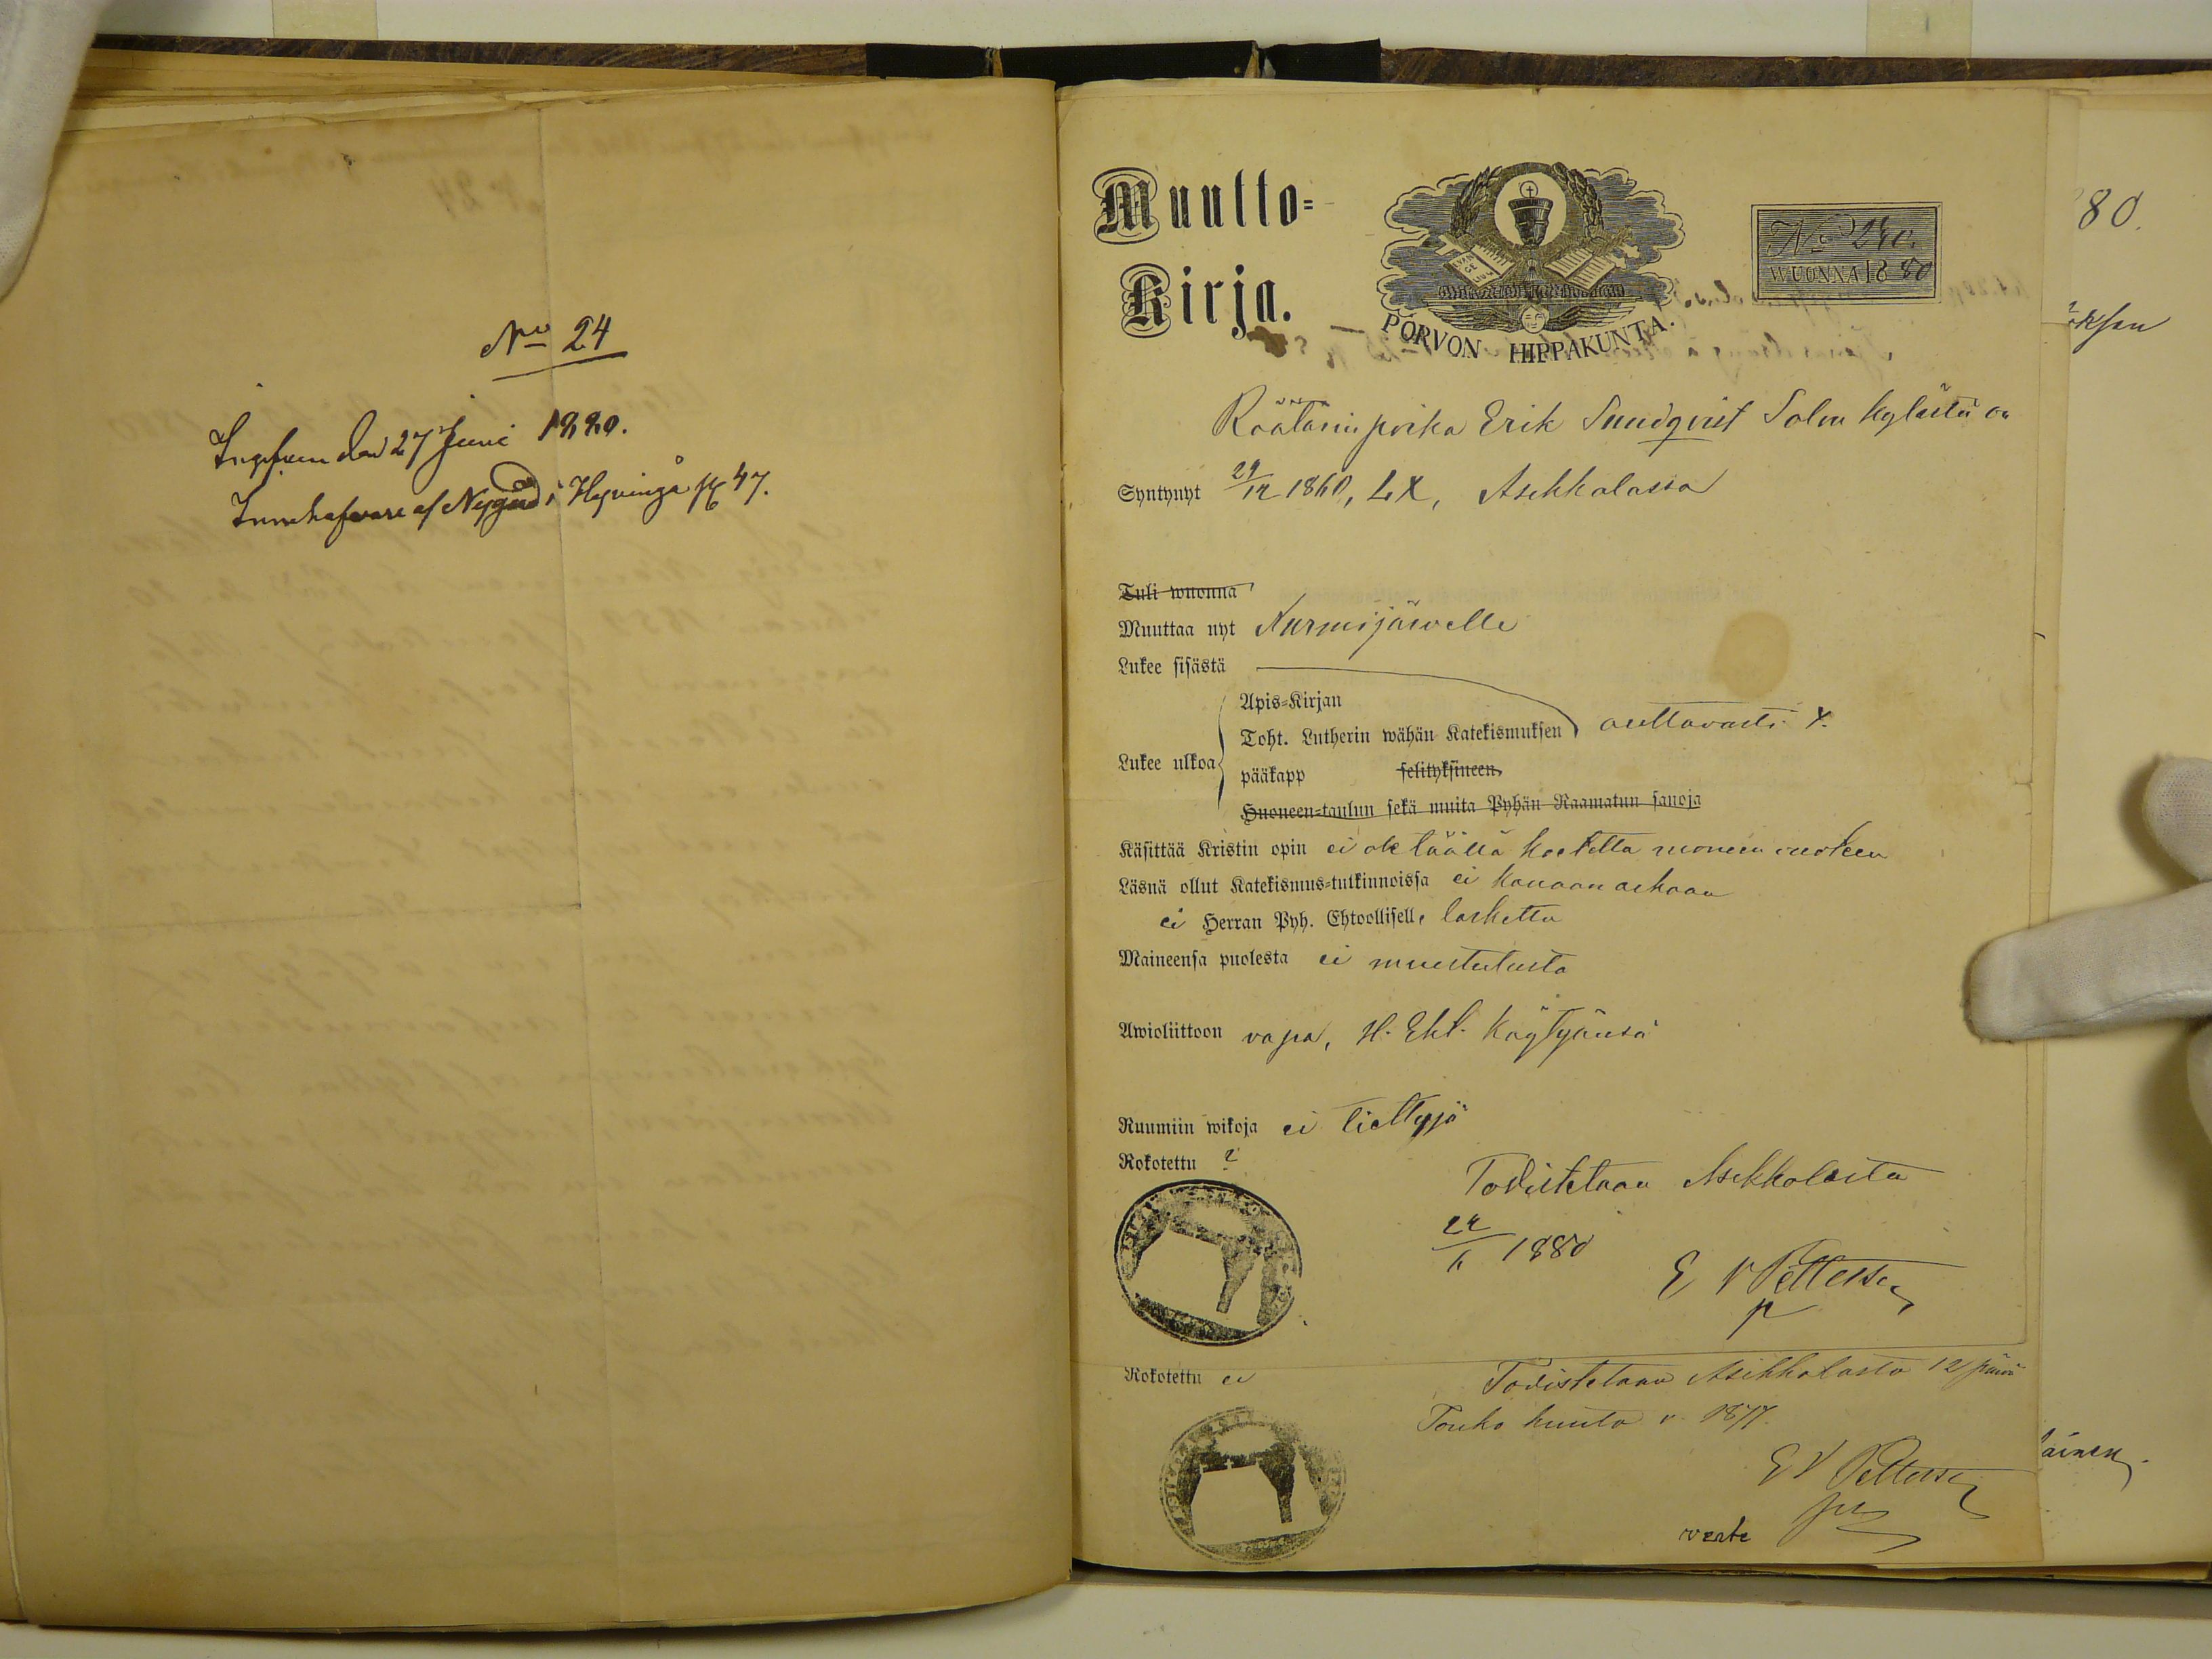 No 24
Ingifven den 27 Juni 1880.
Innehafvare af Nygård i Hyvinge pag 47.
Muutto=
Kirja.
EVAN GE LIUM
PORVON HIPPAKUNTA.
No 240.
WUONNA 18 80
Räätälin poika Erik Sundqvist Salon kylästä on
Syntynyt 29/12 1860, LX, Asikkalassa
Tuli wuonna
Muuttaa nyt Nurmijärvelle
Lukee sisästä
Apis=Kirjan
Toht. Lutherin wähän Katekismuksen auttavasti X.
Lukee ulkoa
pääkapp selityksineen
Huoneen=taulun sekä muita Pyhän Raamatun sanoja
Käsittää Kristin opin ei ole täällä koetettu moneen vuoteen
Läsnä ollut Katekismus=tutkinnoissa ei kauaan aikaan
ei Herran Pyh. Ehtoollisell, laskettu
Maineensa puolesta ei muistutusta
Awioliittoon vapa, H. Eht. käytyänsä
Ruumiin wikoja ei tiettyjä
Rokotettu ?
Todistetaan Asikkalasta
1880
E V Petterson
Rokotettu ei
Todistetaan Asikkalasta 12 päivä
Touko kuuta v. 1877.
E V Petterson
verte
80.